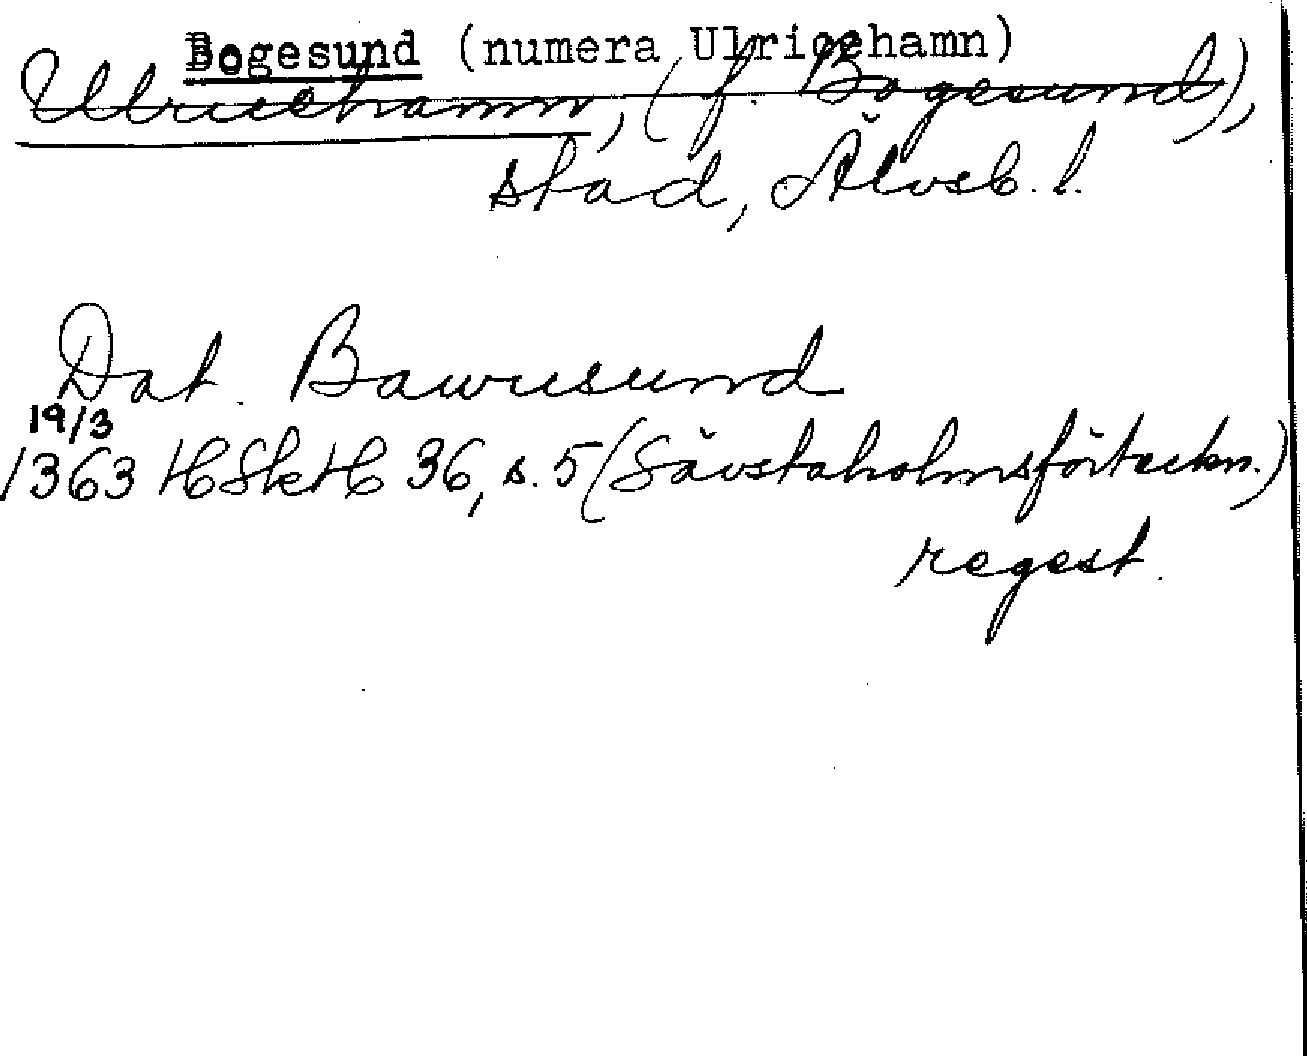 Bogesund (numera Ulricehamn)
Ulricehamn, (f. Bogesund),
stad, Älvsb. l.
Dat. Bawusund
19/3
1363 HSkH 36, s. 5 (Sävstaholmsförteckn.)
regest.